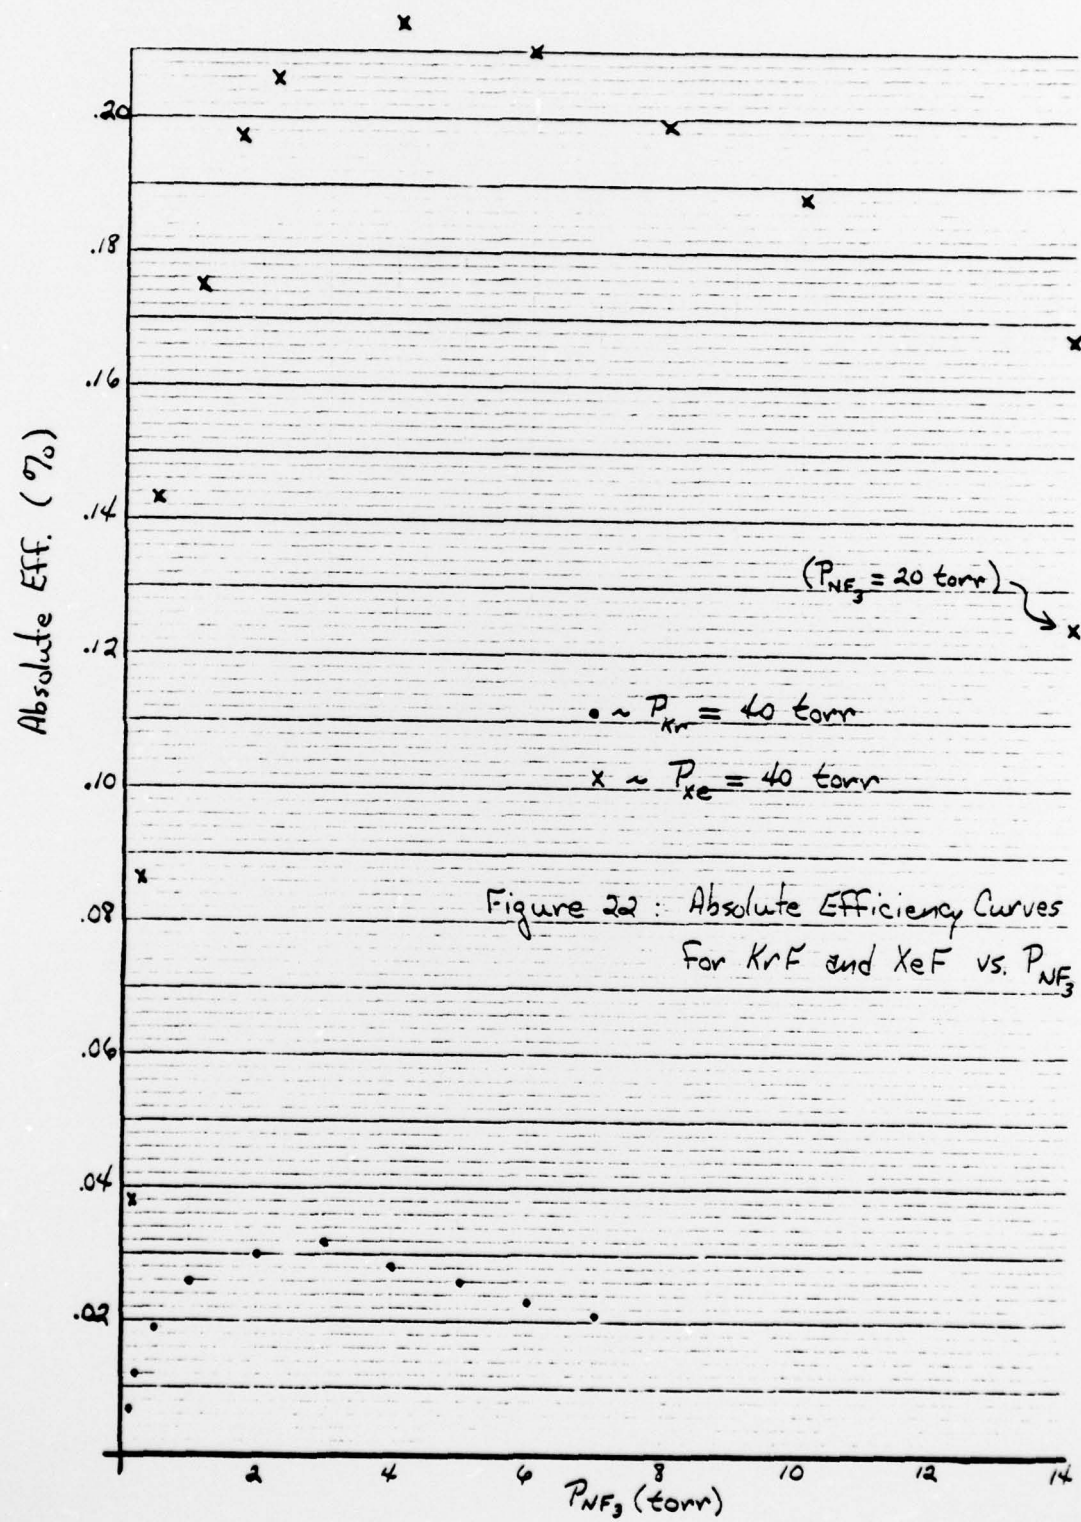 .20
.18
.16
.14
.12
.10
.08
.06
.04
.02
Absolute Eff. (%)
(P_NF₃ = 20 torr)
• ~ P_Kr = 40 torr
x ~ P_Xe = 40 torr
Figure 22 : Absolute Efficiency Curves
For KrF and XeF vs. P_NF₃
2 4 6 8 10 12 14
P_NF₃ (torr)